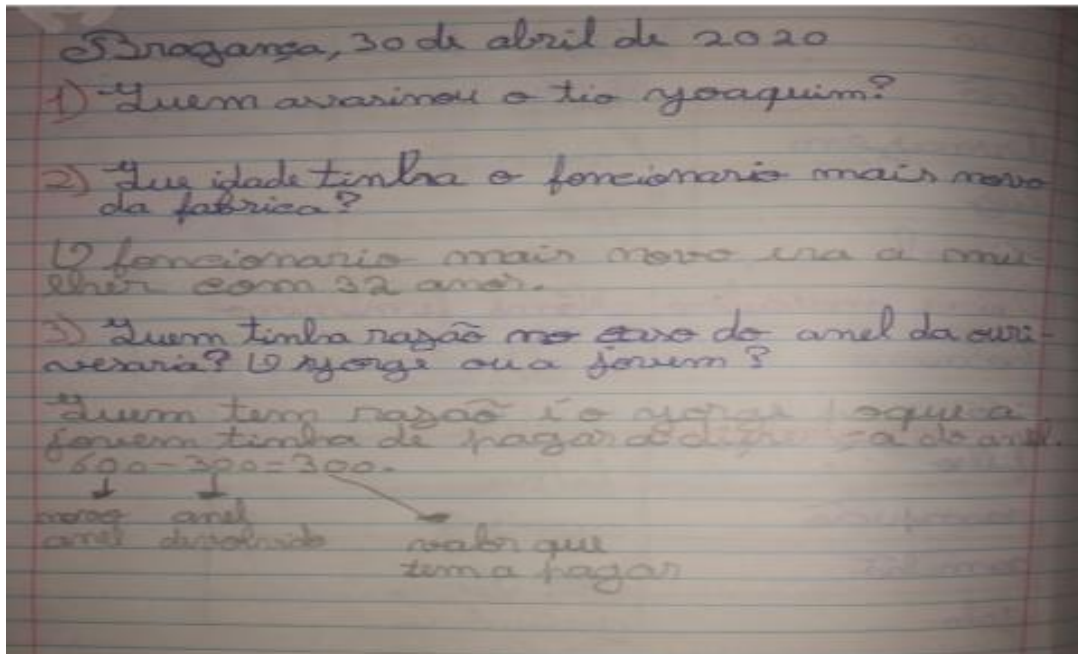 Bragança, 30 de abril de 2020
1) Quem assasinou o tio Joaquim?
2) Que idade tinha o foncionario mais novo
da fabrica?
O foncionario mais novo era a mu
lher com 32 anos.
3) Quem tinha razão no caso do anel da ouri-
vesaria? O Jorge ou a jovem?
Quem tem razão é o Jorge
jovem tinha de pagar a do anel.
600-300=300.
novo anel
anel devolvido valor que
tem a pagar